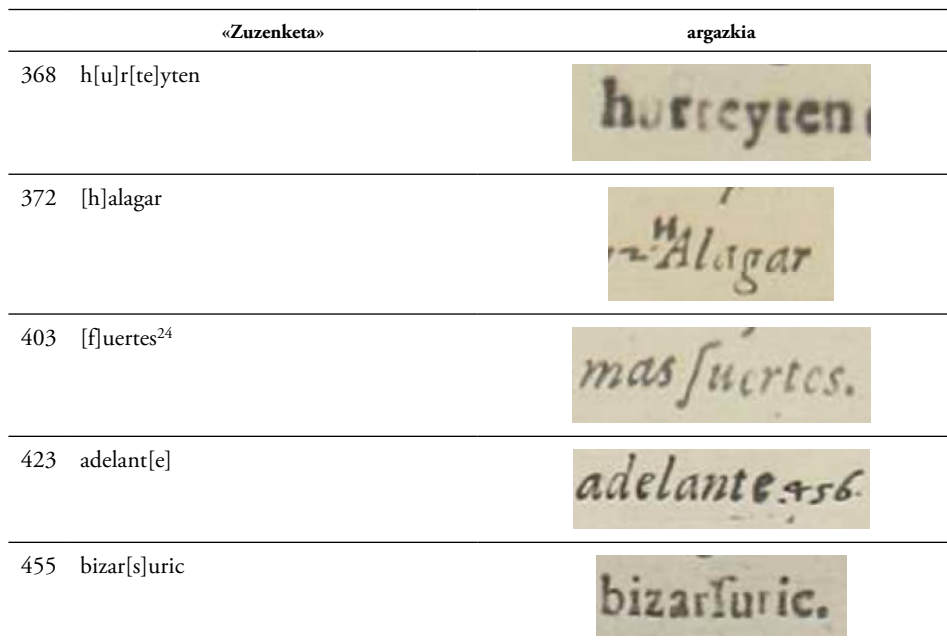 «Zuzenketa» argazkia
368 h[u]r[te]yten hurteyten
372 [h]alagar HAlagar
403 [f]uertes24 mas ſuertes.
423 adelant[e] adelante.456.
455 bizar[s]uric bizarſuric.